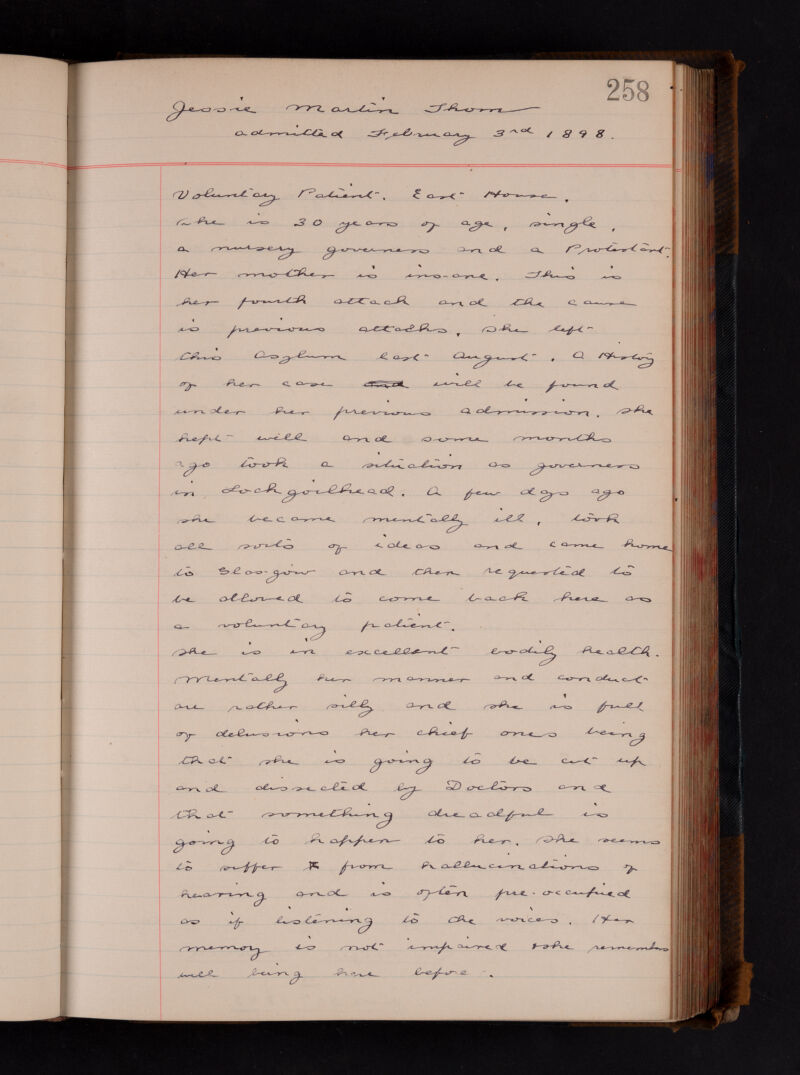 258
Jessie Martin Thom
admitted February 3rd 1898.
Voluntary Patient. East House.
She is 30 years of age, single,
a nursery governess and a Protestant.
Her mother is insane. This is
her fourth attack and the cause
is previous attacks. She left
this Asylum last August. A History
of her case and will be found
under her previous admission. She
kept well and some months
ago took a situation as governess
in Lochgoilhead. A few days ago
she became mentally ill, took
all sorts of ideas and came home
to Glasgow and then requested to
be allowed to come back here as
a voluntary patient.
She is in excellent bodily health.
Mentally her manner and conduct
are rather silly and she is full
of delusions her chief ones being
that she is going to be cut up
and dissected by Doctors and
that something dreadful is
going to happen to her. She seems
to suffer from hallucinations of
hearing and is often pre-occupied
as if listening to the voices. Her
memory is not impaired & she remembers
well being here before.